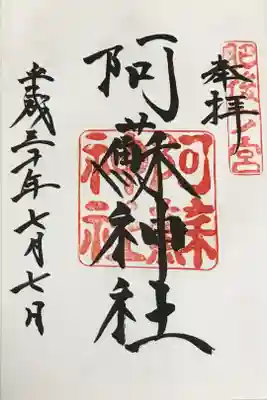 奉拝
阿蘇神社
阿蘇
神社
平成三十年七月七日